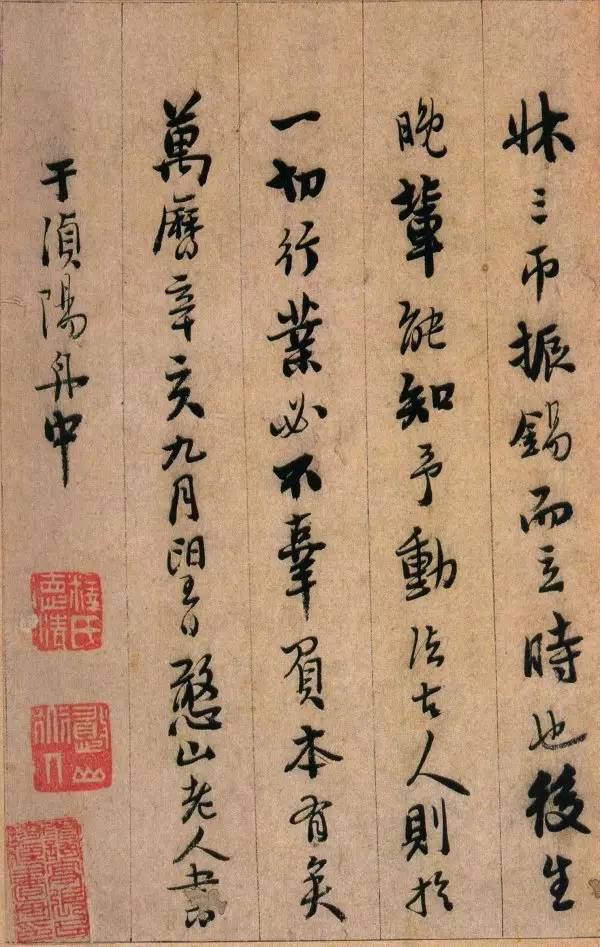 牀三帀振錫而立時也後生
晚輩能知予動法古人則於
一切行業必不辜負本有矣
萬曆辛亥九月望日憨山老人書
于湞陽舟中
釋氏德清